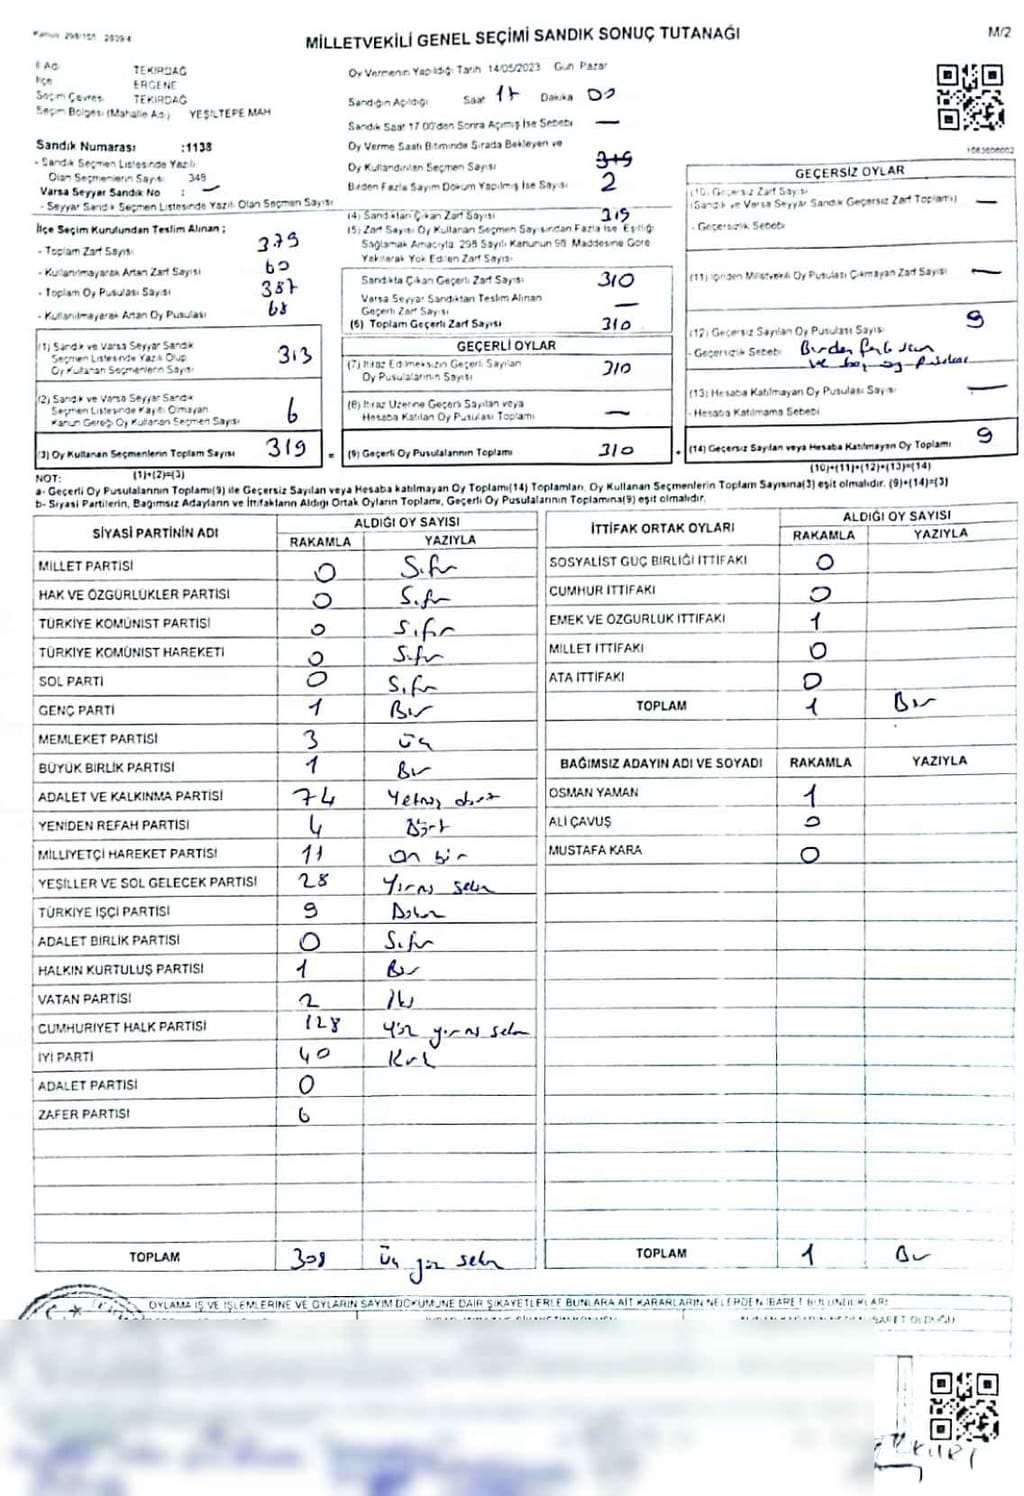 Kanun 298/101 2839/4
MİLLETVEKİLİ GENEL SEÇİMİ SANDIK SONUÇ TUTANAĞI
M/2
İl Adı TEKİRDAĞ
İlçe ERGENE
Seçim Çevresi TEKİRDAĞ
Seçim Bölgesi (Mahalle Adı) YEŞİLTEPE MAH
Sandık Numarası :1138
- Sandık Seçmen Listesinde Yazılı
Olan Seçmenlerin Sayısı 348
Varsa Seyyar Sandık No : —
- Seyyar Sandık Seçmen Listesinde Yazılı Olan Seçmen Sayısı
İlçe Seçim Kurulundan Teslim Alınan ;
- Toplam Zarf Sayısı 379
- Kullanılmayarak Artan Zarf Sayısı 60
- Toplam Oy Pusulası Sayısı 387
- Kullanılmayarak Artan Oy Pusulası 68
(1) Sandık ve Varsa Seyyar Sandık
Seçmen Listesinde Yazılı Olup
Oy Kullanan Seçmenlerin Sayısı 313
(2) Sandık ve Varsa Seyyar Sandık
Seçmen Listesinde Kayıtlı Olmayan
Kanun Gereği Oy Kullanan Seçmen Sayısı 6
(3) Oy Kullanan Seçmenlerin Toplam Sayısı 319
(1)+(2)=(3)
Oy Vermenin Yapıldığı Tarih 14/05/2023 Gün Pazar
Sandığın Açıldığı Saat 17 Dakika 00
Sandık Saat 17.00'den Sonra Açılmış İse Sebebi —
Oy Verme Saati Bitiminde Sırada Bekleyen ve
Oy Kullandırılan Seçmen Sayısı 319
Birden Fazla Sayım Döküm Yapılmış İse Sayısı 2
(4) Sandıktan Çıkan Zarf Sayısı 319
(5) Zarf Sayısı Oy Kullanan Seçmen Sayısından Fazla İse Eşitliği
Sağlamak Amacıyla 298 Sayılı Kanunun 98. Maddesine Göre
Yakılarak Yok Edilen Zarf Sayısı
Sandıkta Çıkan Geçerli Zarf Sayısı 310
Varsa Seyyar Sandıktan Teslim Alınan
Geçerli Zarf Sayısı —
(6) Toplam Geçerli Zarf Sayısı 310
GEÇERLİ OYLAR
(7) İtiraz Edilmeksizin Geçerli Sayılan
Oy Pusulalarının Sayısı 310
(8) İtiraz Üzerine Geçerli Sayılan veya
Hesaba Katılan Oy Pusulası Toplamı —
= (9) Geçerli Oy Pusulalarının Toplamı 310
1063606002
GEÇERSİZ OYLAR
(10) Geçersiz Zarf Sayısı
(Sandık ve Varsa Seyyar Sandık Geçersiz Zarf Toplamı) —
- Geçersizlik Sebebi
(11) İçinden Milletvekili Oy Pusulası Çıkmayan Zarf Sayısı —
(12) Geçersiz Sayılan Oy Pusulası Sayısı 9
- Geçersizlik Sebebi Birden fazla
ve boş oy pusulası
(13) Hesaba Katılmayan Oy Pusulası Sayısı —
- Hesaba Katılmama Sebebi
+ (14) Geçersiz Sayılan veya Hesaba Katılmayan Oy Toplamı 9
(10)+(11)+(12)+(13)=(14)
NOT:
a- Geçerli Oy Pusulalarının Toplamı(9) ile Geçersiz Sayılan veya Hesaba katılmayan Oy Toplamı(14) Toplamları, Oy Kullanan Seçmenlerin Toplam Sayısına(3) eşit olmalıdır. (9)+(14)=(3)
b- Siyasi Partilerin, Bağımsız Adayların ve İttifakların Aldığı Ortak Oyların Toplamı, Geçerli Oy Pusulalarının Toplamına(9) eşit olmalıdır.
SİYASİ PARTİNİN ADI ALDIĞI OY SAYISI
RAKAMLA YAZIYLA
MİLLET PARTİSİ 0 Sıfır
HAK VE ÖZGÜRLÜKLER PARTİSİ 0 Sıfır
TÜRKİYE KOMÜNİST PARTİSİ 0 Sıfır
TÜRKİYE KOMÜNİST HAREKETİ 0 Sıfır
SOL PARTİ 0 Sıfır
GENÇ PARTİ 1 Bir
MEMLEKET PARTİSİ 3 Üç
BÜYÜK BİRLİK PARTİSİ 1 Bir
ADALET VE KALKINMA PARTİSİ 74 Yetmiş dört
YENİDEN REFAH PARTİSİ 4 Dört
MİLLİYETÇİ HAREKET PARTİSİ 11 On bir
YEŞİLLER VE SOL GELECEK PARTİSİ 28 Yirmi sekiz
TÜRKİYE İŞÇİ PARTİSİ 9 Dokuz
ADALET BİRLİK PARTİSİ 0 Sıfır
HALKIN KURTULUŞ PARTİSİ 1 Bir
VATAN PARTİSİ 2 İki
CUMHURİYET HALK PARTİSİ 128 Yüz yirmi sekiz
İYİ PARTİ 40 Kırk
ADALET PARTİSİ 0
ZAFER PARTİSİ 6
TOPLAM 308 Üç yüz sekiz
İTTİFAK ORTAK OYLARI ALDIĞI OY SAYISI
RAKAMLA YAZIYLA
SOSYALİST GÜÇ BİRLİĞİ İTTİFAKI 0
CUMHUR İTTİFAKI 0
EMEK VE ÖZGÜRLÜK İTTİFAKI 1
MİLLET İTTİFAKI 0
ATA İTTİFAKI 0
TOPLAM 1 Bir
BAĞIMSIZ ADAYIN ADI VE SOYADI RAKAMLA YAZIYLA
OSMAN YAMAN 1
ALİ ÇAVUŞ 0
MUSTAFA KARA 0
TOPLAM 1 Bir
OYLAMA İŞ VE İŞLEMLERİNE VE OYLARIN SAYIM DÖKÜMÜNE DAİR ŞİKAYETLERLE BUNLARA AİT KARARLARIN NELERDEN İBARET BULUNDUKLARI